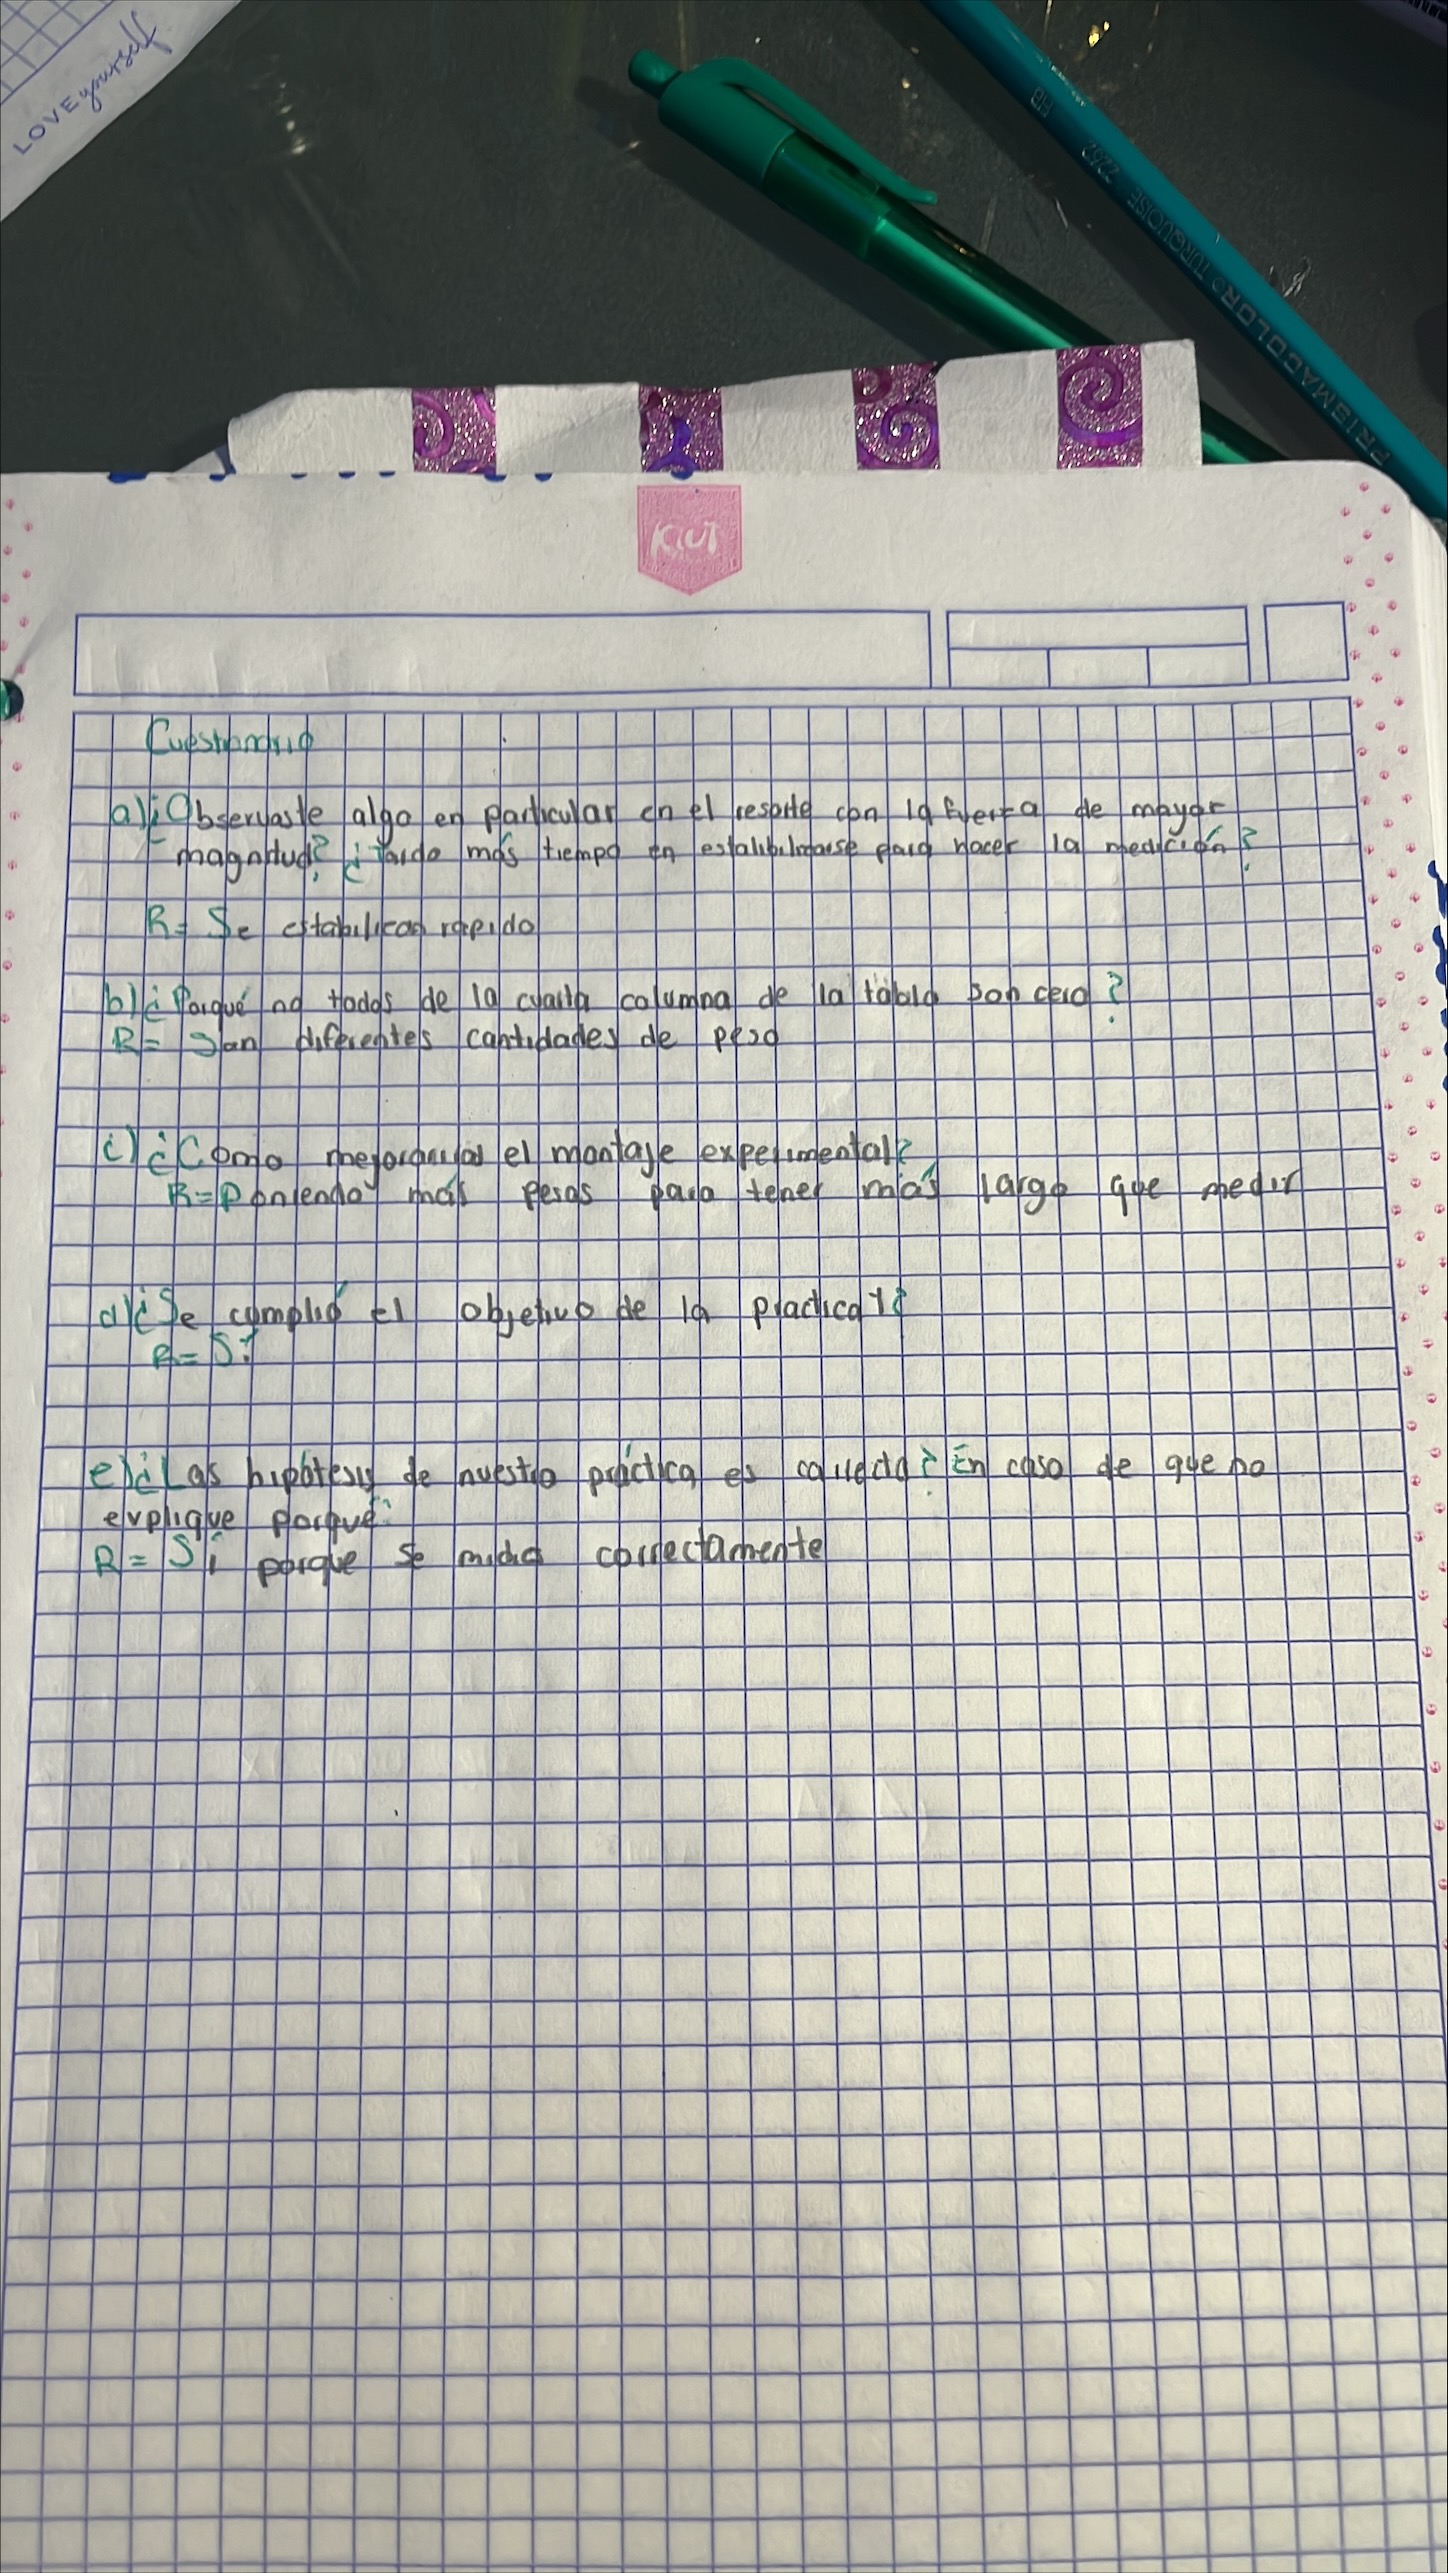 LOVE yourself
HB
PRISMACOLOR TURQUOISE
KIUT
Cuestionario
a) ¿Observaste algo en particular en el resorte con la fuerza de mayor
magnitud? ¿Tardo más tiempo en para hacer la medición?
R= Se rápido
b) ¿Porqué no todos de la cuarta columna de la tabla son cero?
R= Son diferentes cantidades de peso
c) ¿Como mejorarias el montaje experimental?
R= Poniendo más pesos para tener más largo que medir
d) ¿Se cumplió el objetivo de la practica?
R= Sí
e) ¿Las hipótesis de nuestra práctica es correcta? En caso de que no
explique porqué.
R= Sí porque se midio correctamente